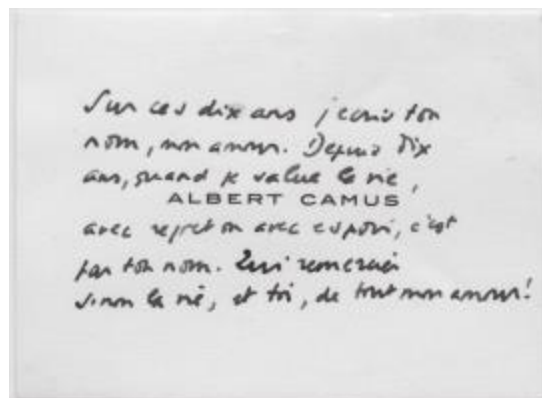 Sur ces dix ans j'écris ton
nom, mon amour. Depuis dix
ans, quand je salue la vie,
ALBERT CAMUS
avec regret ou avec espoir, c'est
par ton nom. Qui remercier
sinon la vie, et toi, de tout mon amour!